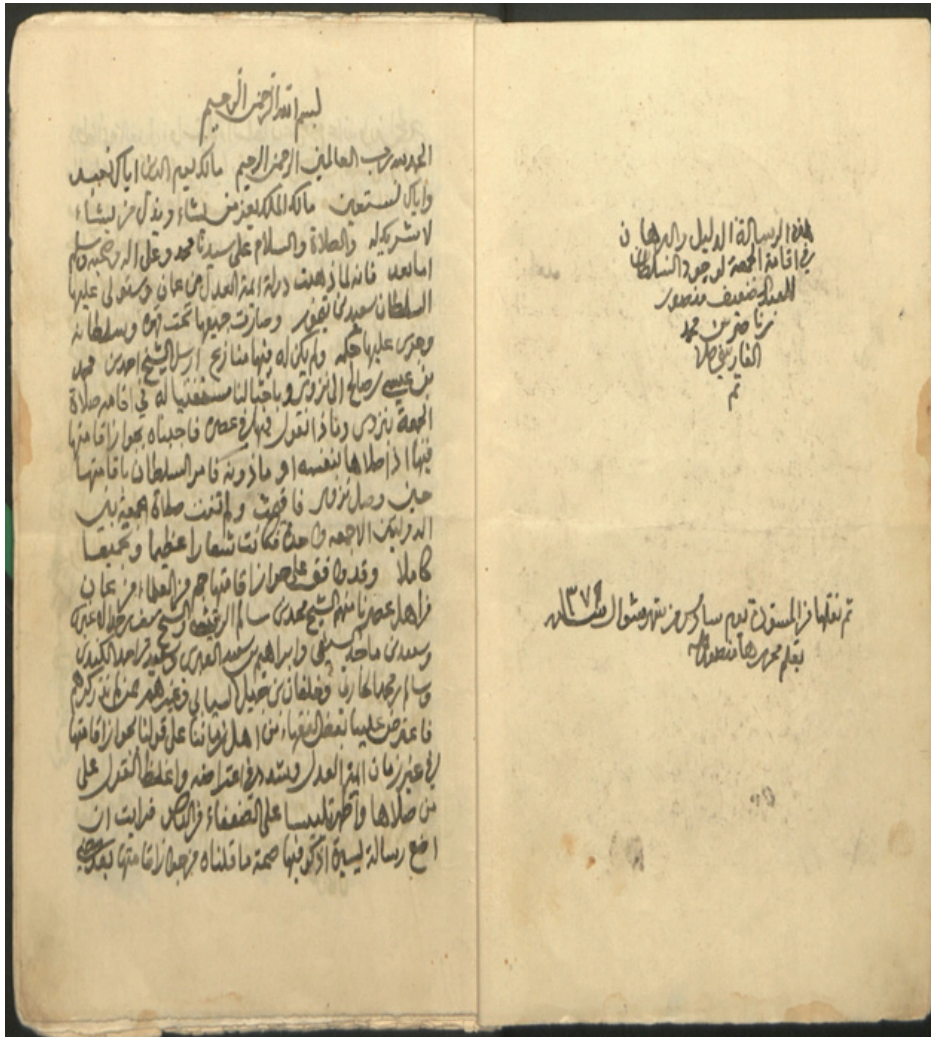 هذه الرسالة الدليل والبرهان
في اقامة الجمعة لوجود السلطان
للعبد الضعيف منصور
بن ناصر بن محمد
الفارسي
تم
تم نقلها من المسودة يوم سادس من شهر شوال سنة
بقلم محررها منصور
بسم الله الرحمن الرحيم
الحمد لله رب العالمين الرحمن الرحيم مالك يوم الدين اياك نعبد
واياك نستعين مالك الملك يعز من يشاء ويذل من يشاء
لا شريك له والصلاة والسلام على سيدنا محمد وعلى اله وصحبه وسلم
اما بعد فانه لما ذهبت دولة ائمة العدل من عمان واستولى عليها
السلطان سعيد بن تيمور وصارت جميعها تحت قهره وسلطانه
وجرى عليها حكمه ولم يكن له فيها منازع ارسل الشيخ احمد بن محمد
بن عيسى بن صالح الى نزوى مستفتيا له في اقامة صلاة
الجمعة بنزوى وماذا القول فيها في عصره فاجبناه بجواز اقامتها
فيها اذا صلاها بنفسه او ماذونه فامر السلطان باقامتها
حين وصل نزوى فاقيمت ولم تفت صلاة الجمعة بين
الدولتين الا جمعة واحدة فكانت شعارا عظيما
كاملا وقد وافق على جواز اقامتها جم من العلماء من عمان
من اهل عصرنا منهم الشيخ محمد بن سالم الرقيشي والشيخ سفيان
وسعيد بن ماجد السيفي وابراهيم بن سعيد العبري وسعيد بن احمد الكندي
وسالم بن محمد الحارثي وخلفان بن جميل السيابي وغيرهم ممن لم نذكرهم
فاعترض علينا بعض الفقهاء من اهل زماننا على قولنا بجواز اقامتها
في غير زمان ائمة العدل وشدد في اعتراضه واغلظ القول على
من صلاها واظهر تلبيسا على الضعفاء من الناس فرايت ان
اضع رسالة يسيرة اذكر فيها صحة ما قلناه من جواز اقامتها بعد